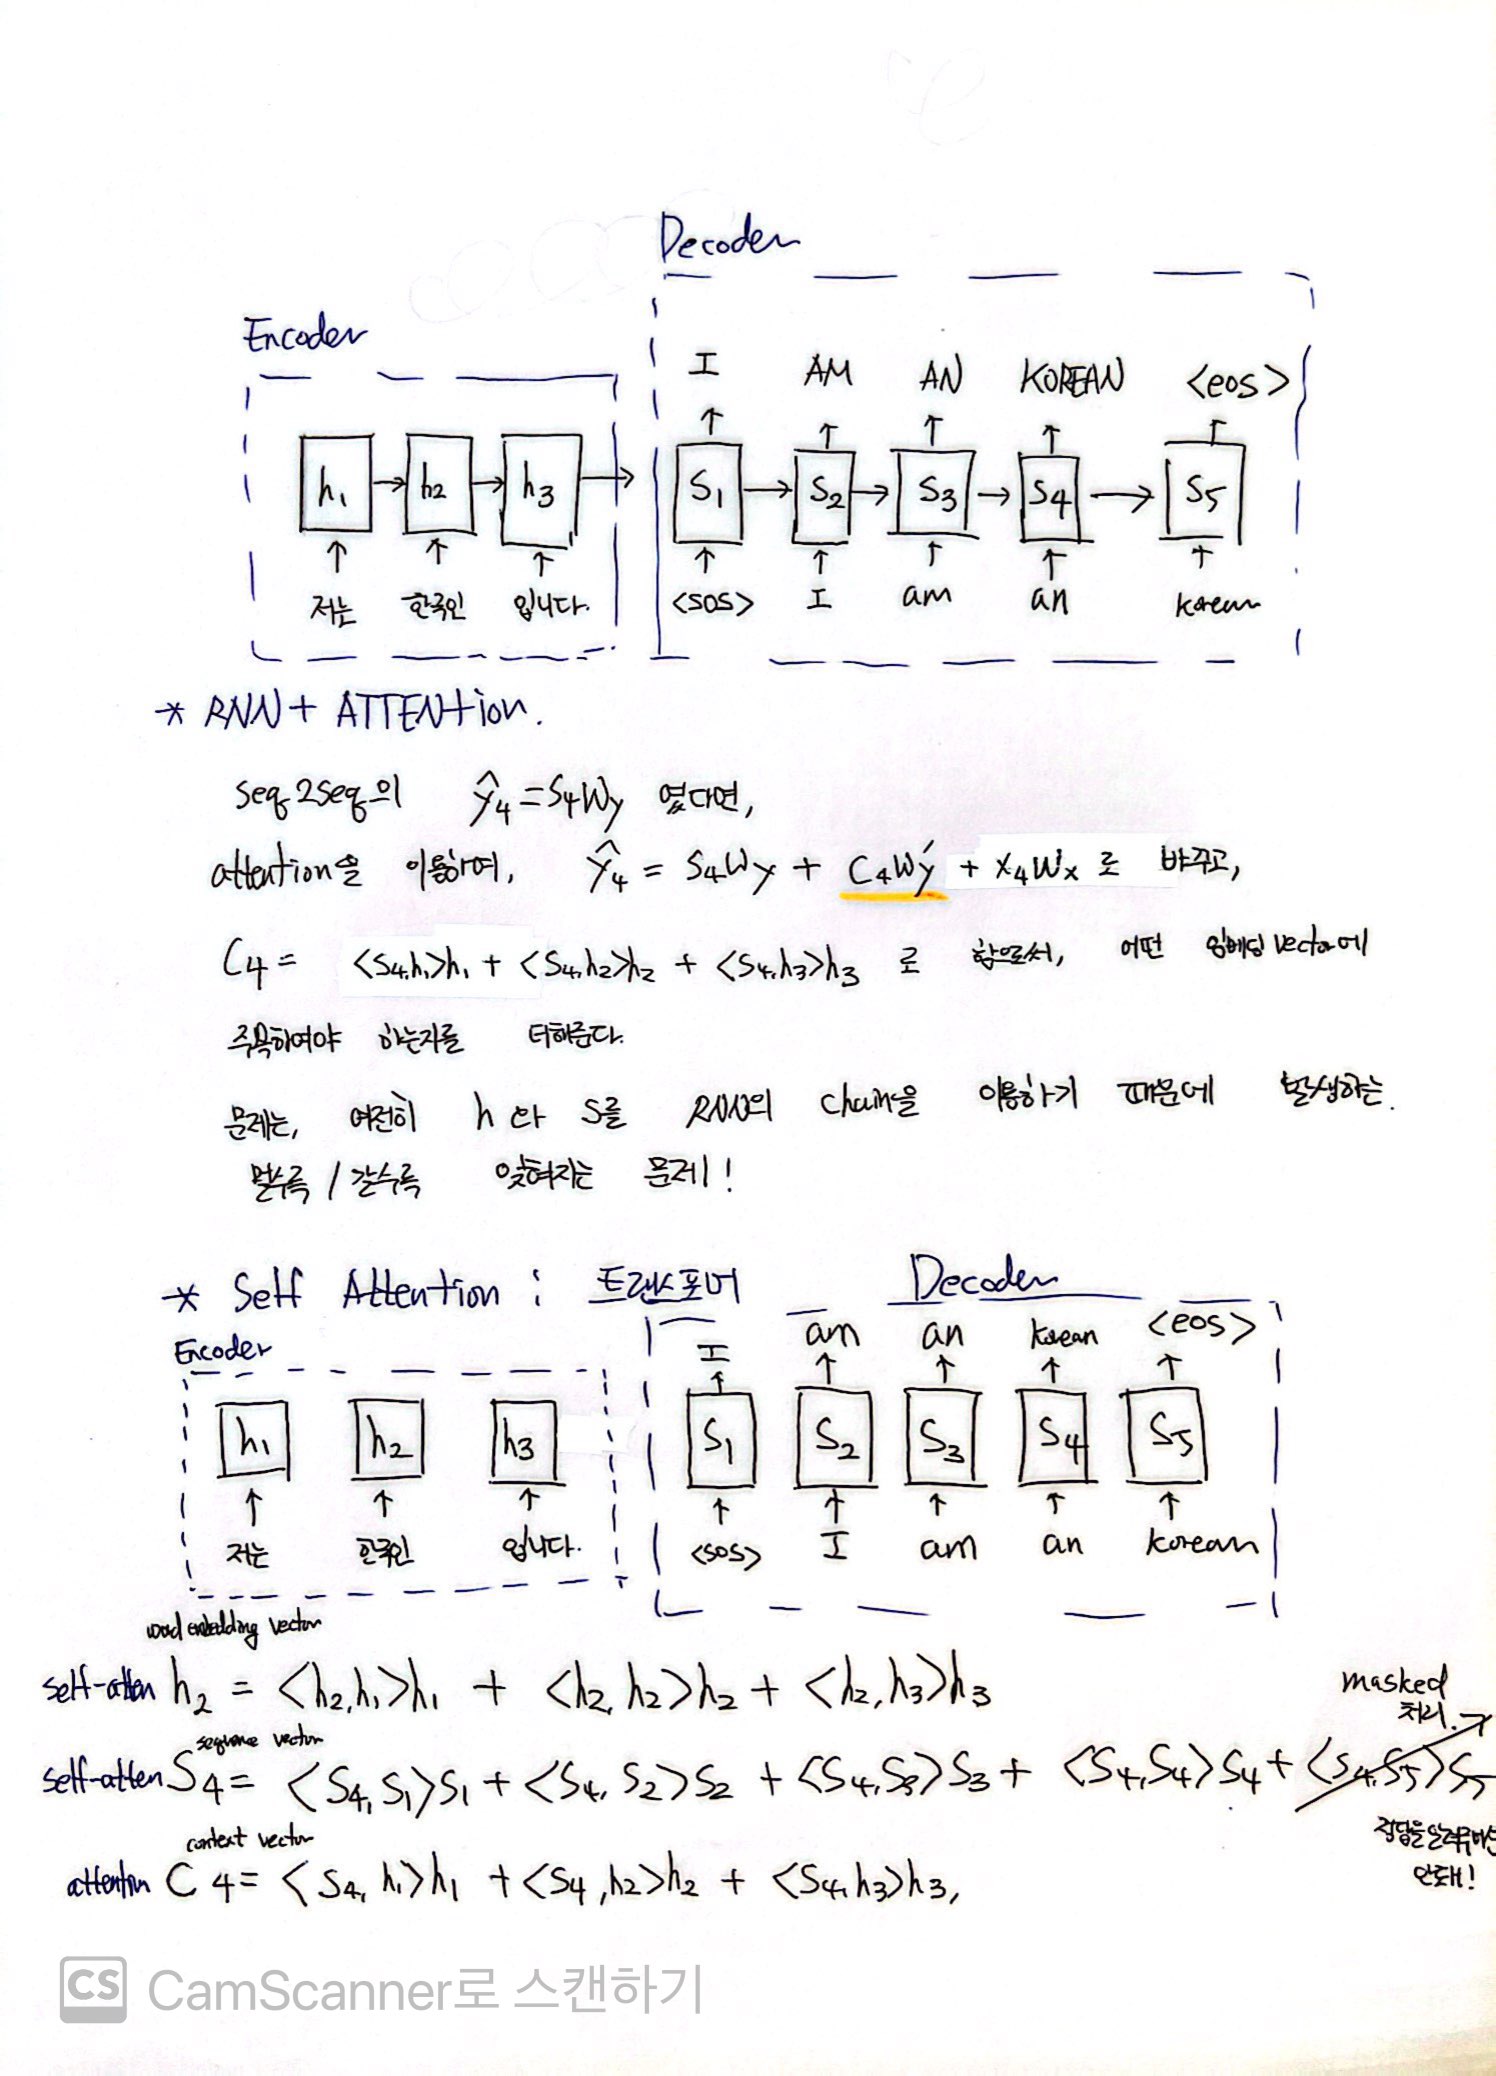 Decoder
Encoder
I AM AN KOREAN <eos>
h1 h2 h3 S1 S2 S3 S4 S5
저는 한국인 입니다. <sos> I am an korean
* RNN + ATTENtion.
seq2seq의 ŷ4 = S4Wy 였다면,
attention을 이용하여, ŷ4 = S4Wy + C4Wý + X4Wx 로 바꾸고,
C4 = <S4,h1>h1 + <S4,h2>h2 + <S4,h3>h3 로 함으로써, 어떤 임베딩 vector에
주목하여야 하는지를 더해준다.
문제는, 여전히 h 와 S를 RNN의 chain을 이용하기 때문에 발생하는
멀수록 / 갈수록 잊혀지는 문제!
* Self Attention : 트랜스포머 Decoder
Encoder
I am an korean <eos>
h1 h2 h3 S1 S2 S3 S4 S5
저는 한국인 입니다. <sos> I am an korean
word embedding vector
self-atten h2 = <h2,h1>h1 + <h2,h2>h2 + <h2,h3>h3
masked
처리.
sequence vector
self-atten S4 = <S4,S1>S1 + <S4,S2>S2 + <S4,S3>S3 + <S4,S4>S4 + <S4,S5>S5
정답을 알려주면
안돼!
context vector
attention C4 = <S4,h1>h1 + <S4,h2>h2 + <S4,h3>h3,
CS CamScanner로 스캔하기